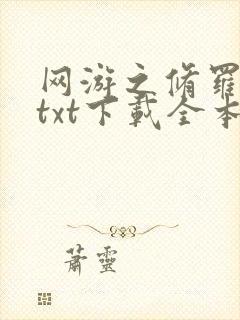 网游之脩羅
txt下載全本
蕭靈